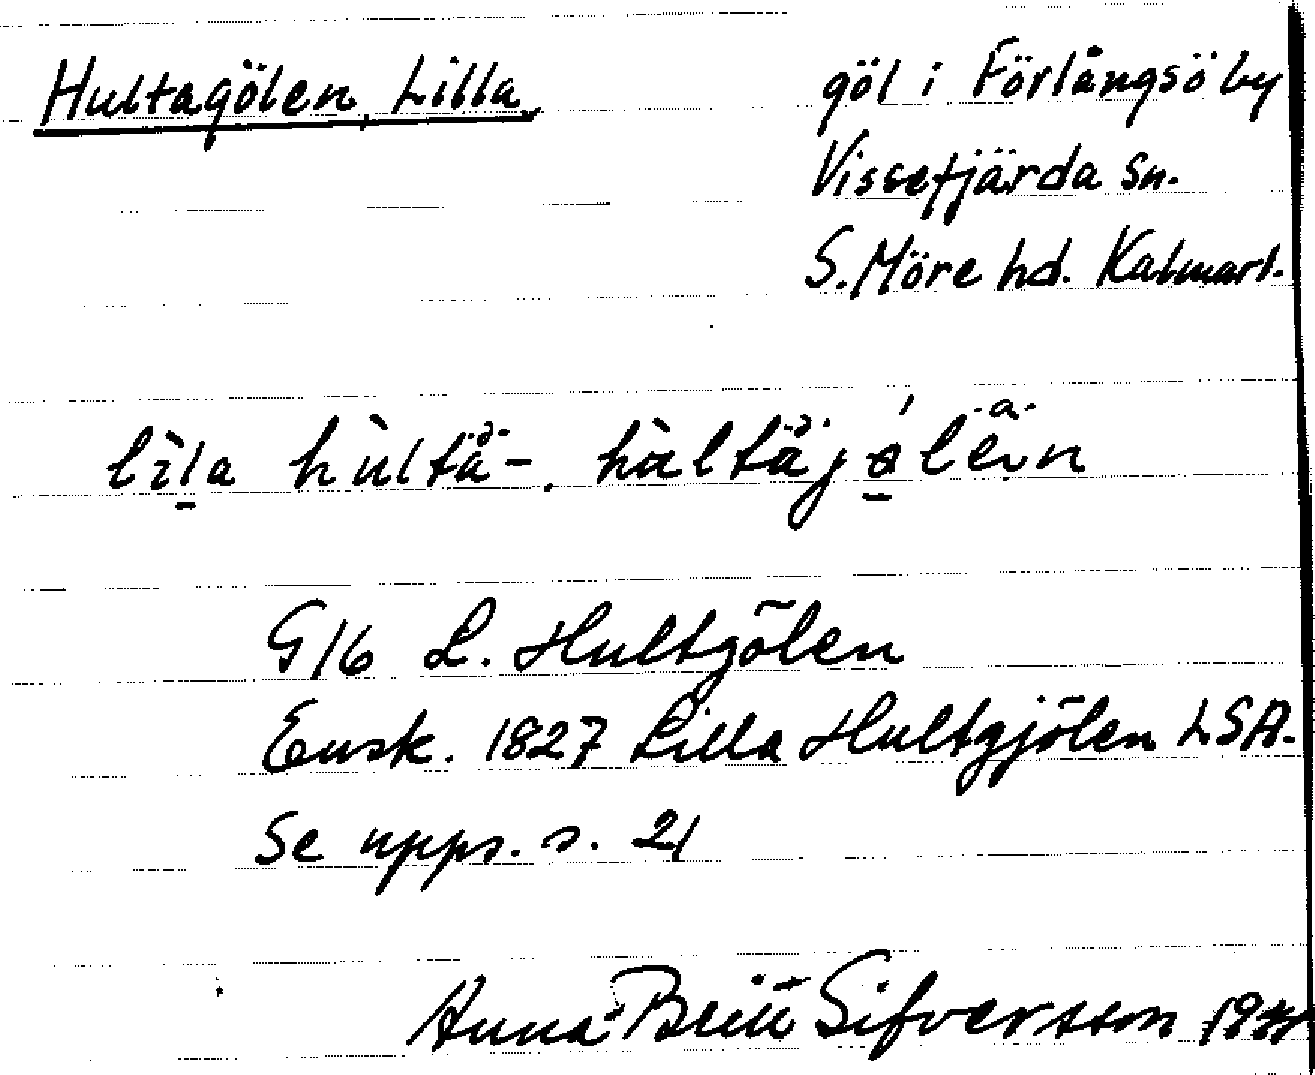 Hultagölen, Lilla
göl i Förlångsö by
Vissefjärda sn.
S. Möre hd. Kalmarl.
lìla hùltå-, hàltåjølen
G16 L. Hultgölen
Ensk. 1827 Lilla Hultgjölen LSA.
Se upps. s. 21
Anna-Britt Sifversson